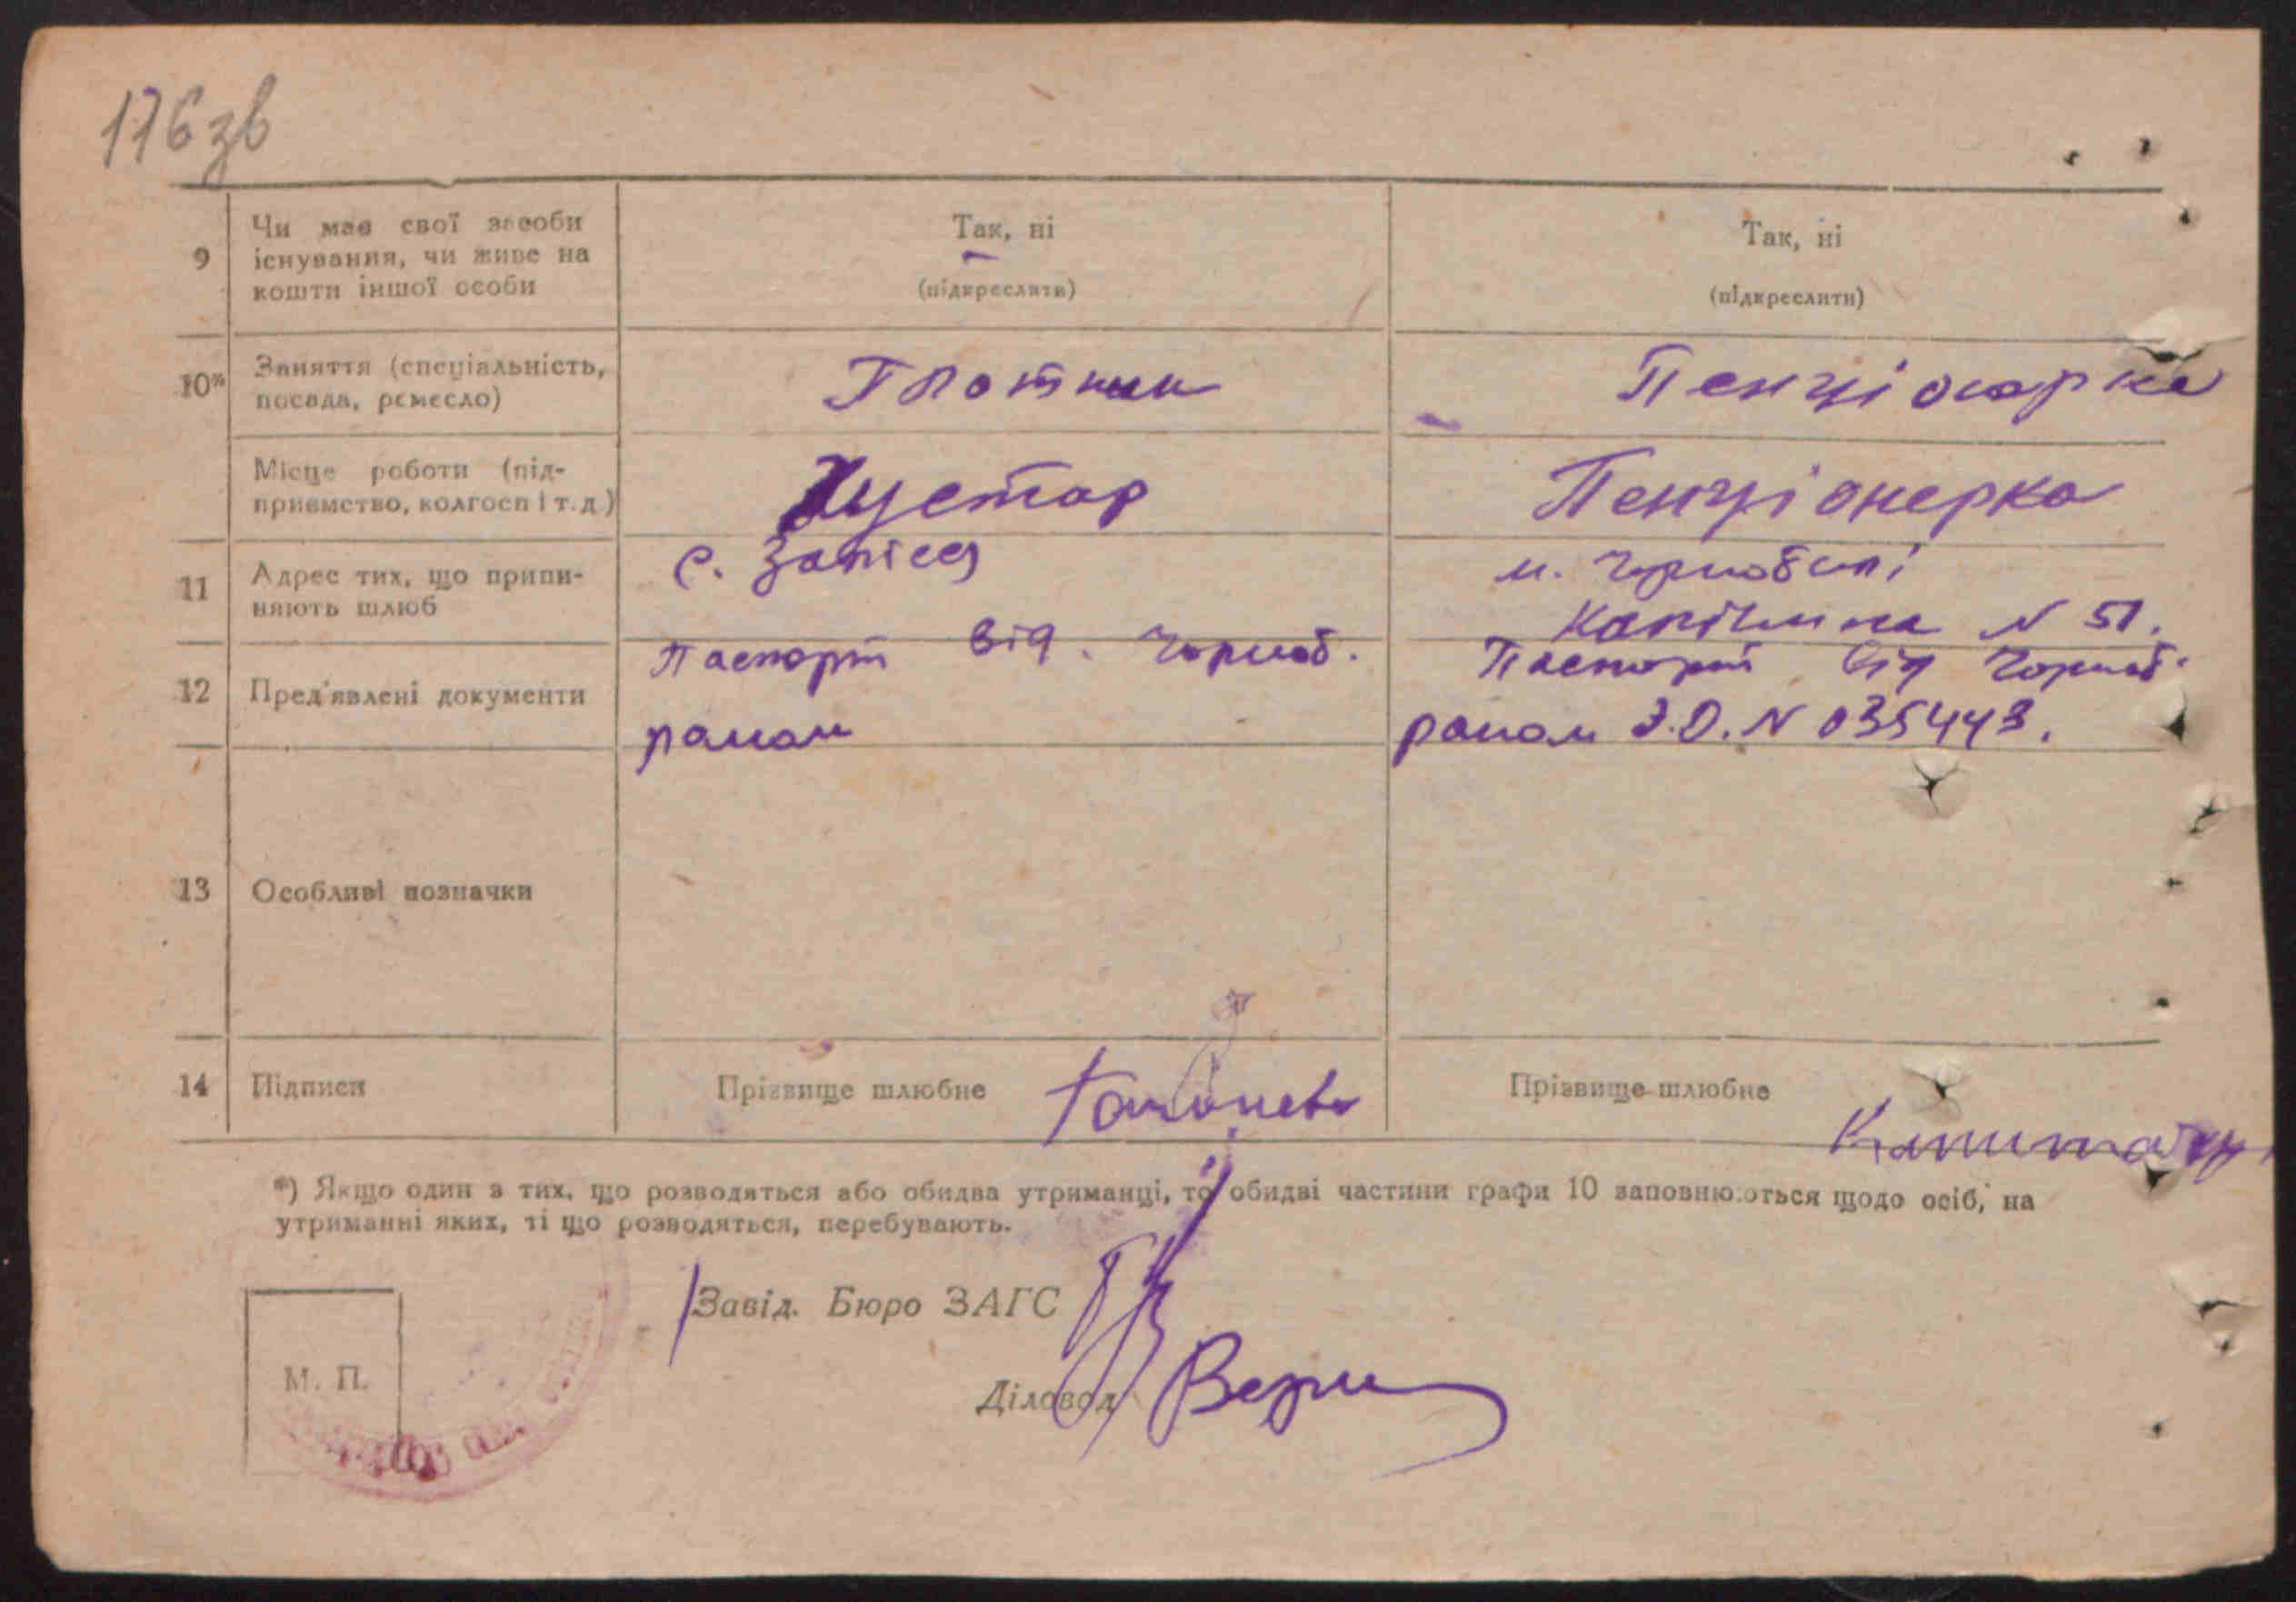 176 зв
9
Чи має свої засоби
існування, чи живе на
кошти іншої особи
Так, ні
(підкреслити)
Так, ні
(підкреслити)
10*
Заняття (спеціальність,
посада, ремесло)
Плотник
Пенціонерка
Місце роботи (під-
приємство, колгосп і т. д.)
Кустар
Пенціонерка
11
Адрес тих, що припи-
няють шлюб
с. Залісся
м. Чорнобилі
N 51.
12
Пред'явлені документи
Паспорт від. Чорноб.
Паспорт від Чорноб.
N 035443.
13
Особливі позначки
14
Підписи
Прізвище шлюбне
Прізвище шлюбне
*) Якщо один з тих, що розводяться або обидва утриманці, то обидві частини графи 10 заповнюються щодо осіб, на
утриманні яких, ті що розводяться, перебувають.
Завід. Бюро ЗАГС
М. П.
Діловод